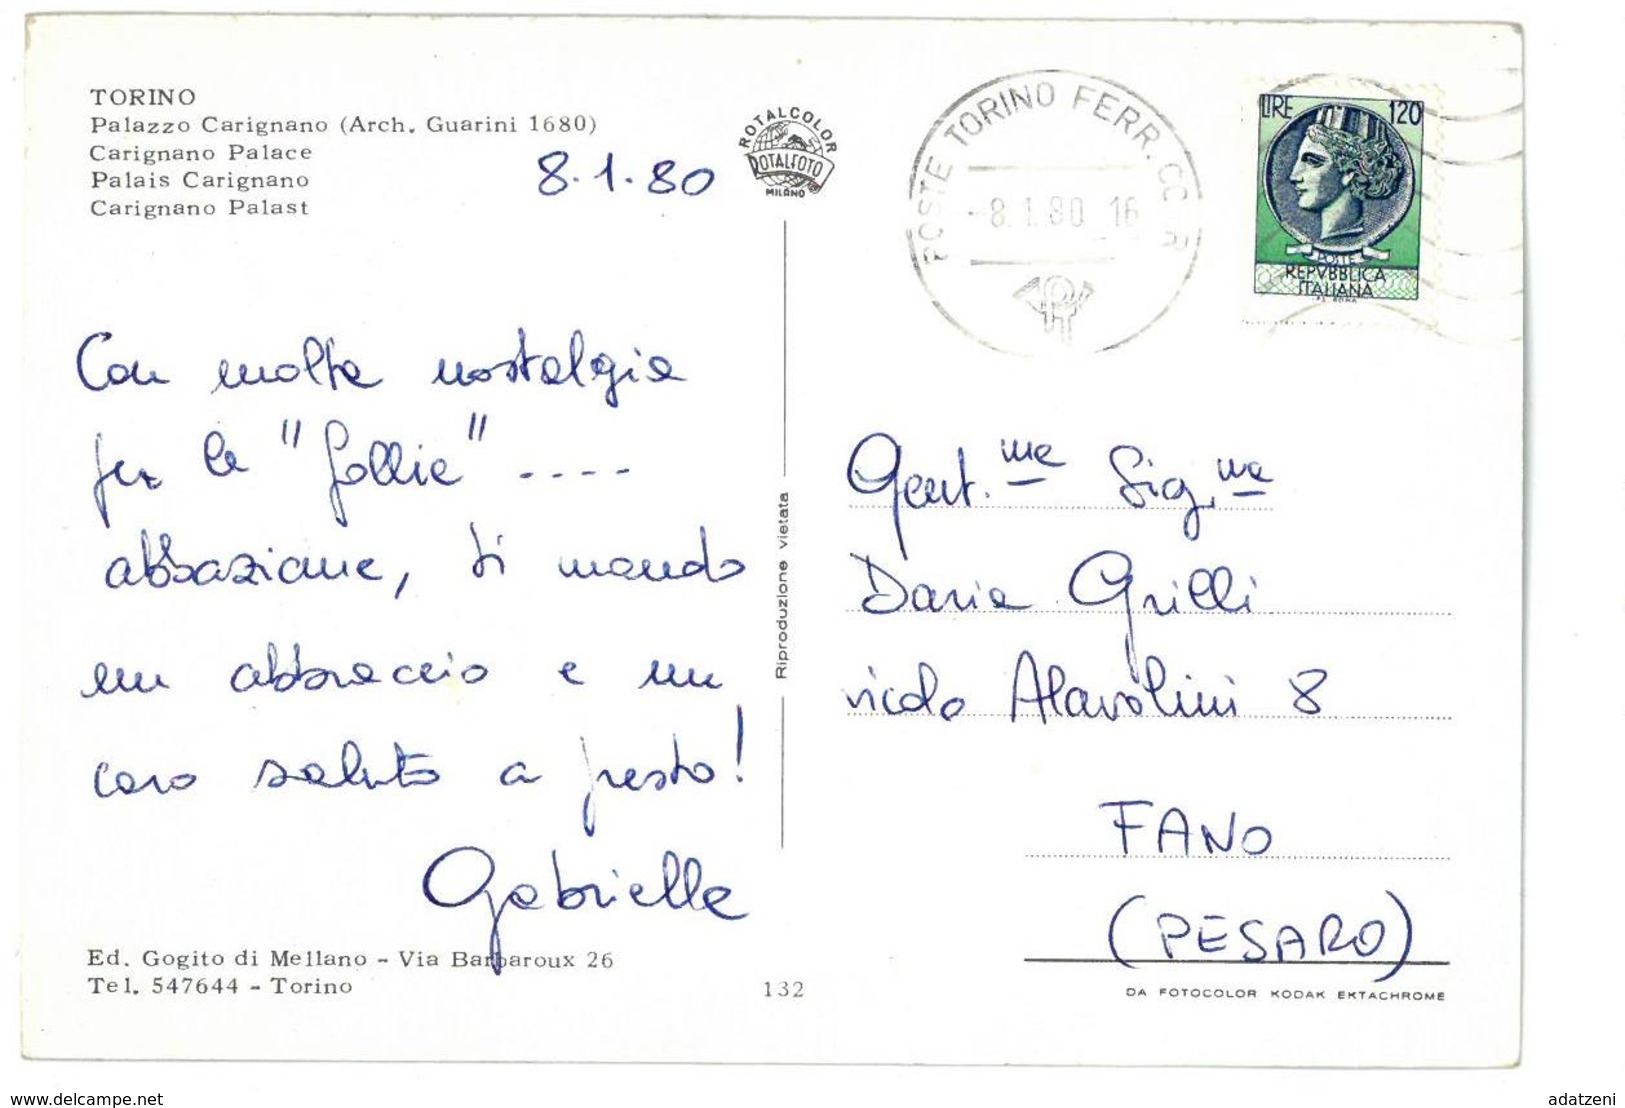 TORINO
Palazzo Carignano (Arch. Guarini 1680)
Carignano Palace
Palais Carignano
Carignano Palast
8.1.80
ROTALCOLOR
ROTALFOTO
MILANO
POSTE TORINO FERR. CORR
-8.1.80 16
LIRE 120
POSTE
REPVBBLICA
ITALIANA
Con molta nostalgia
per le "follie" ----
abbaziane, ti mando
un abbraccio e un
caro saluto a presto!
Gabriella
Riproduzione vietata
Gent.ma Sig.na
Daria Grilli
vicolo Alavolini 8
FANO
(PESARO)
Ed. Gogito di Mellano - Via Barbaroux 26
Tel. 547644 - Torino
132
DA FOTOCOLOR KODAK EKTACHROME
www.delcampe.net
adatzeni